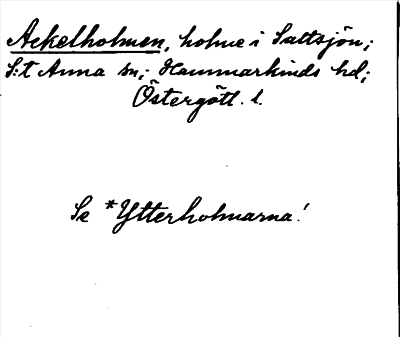 Aekelholmen, holme i Saltsjön;
S:t Anna sn; Hammarkinds hd;
Östergötl. l.
Se *Ytterholmarna!